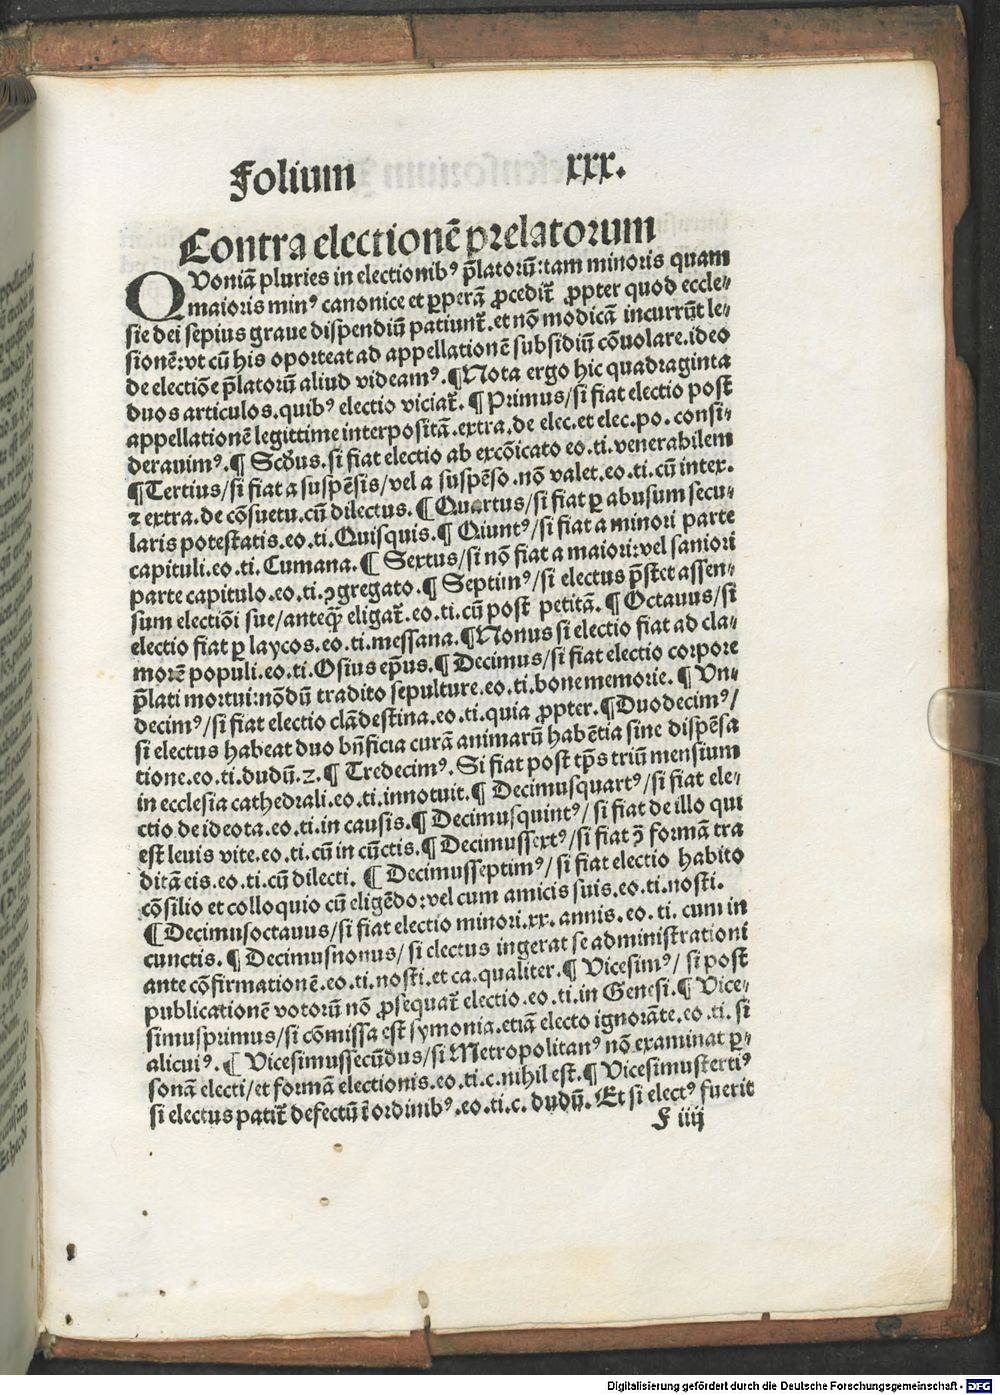 Folium xxx.
Contra electionē prelatorum
QVoniā pluries in electionibꝰ p̄latoꝝ:tam minoris quam
maioris minꝰ canonice et ꝑperā ꝓcedit̄ ꝓpter quod eccle⸗
sie dei sepius graue dispendiū patiunt̄.et nō modicā incurrūt le⸗
sionē:vt cū his oporteat ad appellationē subsidiū cōuolare.ideo
de electiōe p̄latorū aliud videamꝰ.¶Nota ergo hic quadraginta
duos articulos.quibꝰ electio viciat̄.¶Primus/si fiat electio post
appellationē legittime interpositā.extra.de elec.et elec.po.consi⸗
derauimꝰ.¶ Scd̄us.si fiat electio ab excōicato eo.ti.venerabilem
¶Tertius/si fiat a suspēsis/vel a suspēso.nō valet.eo.ti.cū inter.
⁊ extra.de cōsuetu.cū dilectus.¶Quartus/si fiat ꝑ abusum secu⸗
laris potestatis.eo.ti.Quisquis.¶ Qiuntꝰ/si fiat a minori parte
capituli.eo.ti.Cumana.¶ Sextus/si nō fiat a maiori:vel saniori
parte capitulo.eo.ti.ꝯgregato.¶ Septimꝰ/si electus p̄stet assen⸗
sum electiōi sue/anteꝙ̄ eligat̄.eo.ti.cū post petitā.¶ Octauus/si
electio fiat ꝑ laycos.eo.ti.messana.¶Nonus si electio fiat ad cla⸗
morē populi.eo.ti.Osius ep̄us.¶Decimus/si fiat electio corpore
p̄lati mortui:nōdū tradito sepulture.eo.ti.bone memorie.¶ Vn⸗
decimꝰ/si fiat electio clādestina.eo.ti.quia ꝓpter.¶Duodecimꝰ/
si electus habeat duo bn̄ficia curā animarū habētia sine dispēsa
tione.eo.ti.dudū.2.¶ Tredecimꝰ.Si fiat post tp̄s triū mensium
in ecclesia cathedrali.eo.ti.innotuit.¶ Decimusquartꝰ/si fiat ele⸗
ctio de ideota.eo.ti.in causis.¶Decimusquintꝰ/si fiat de illo qui
est leuis vite.eo.ti.cū in cūctis.¶Decimussextꝰ/si fiat ꝯ̄ formā tra
ditā eis.eo.ti.cū dilecti. ¶ Decimusseptimꝰ/si fiat electio habito
cōsilio et colloquio cū eligēdo:vel cum amicis suis.eo.ti.nosti.
¶Decimusoctauus/si fiat electio minori.xx.annis.eo.ti.cum in
cunctis.¶Decimusnonus/si electus ingerat se administrationi
ante cōfirmationē.eo.ti.nosti.et ca.qualiter.¶ Vicesimꝰ/si post
publicationē votorū nō ꝓsequat̄ electio.eo.ti.in Genesi.¶Vice⸗
simusprimus/si cōmissa est symonia.etiā electo ignorāte.eo.ti.si
alicuiꝰ.¶ Vicesimussecūdus/si Metropolitanꝰ nō examinat ꝑ⸗
sonā electi/et formā electionis.eo.ti.c.nihil est.¶Vicesimustertiꝰ
si electus patit̄ defectū ī ordinibꝰ.eo.ti.c.dudū.Et si electꝰ fuerit
F iiij
Digitalisierung gefördert durch die Deutsche Forschungsgemeinschaft - DFG